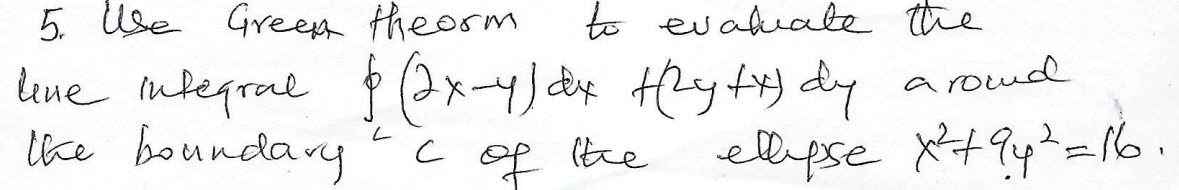 5. Use Green theorm to evaluate the
line integral ∮ (2x-y) dx +(2y+x) dy around
c
the boundary C of the ellipse x²+9y²=16.